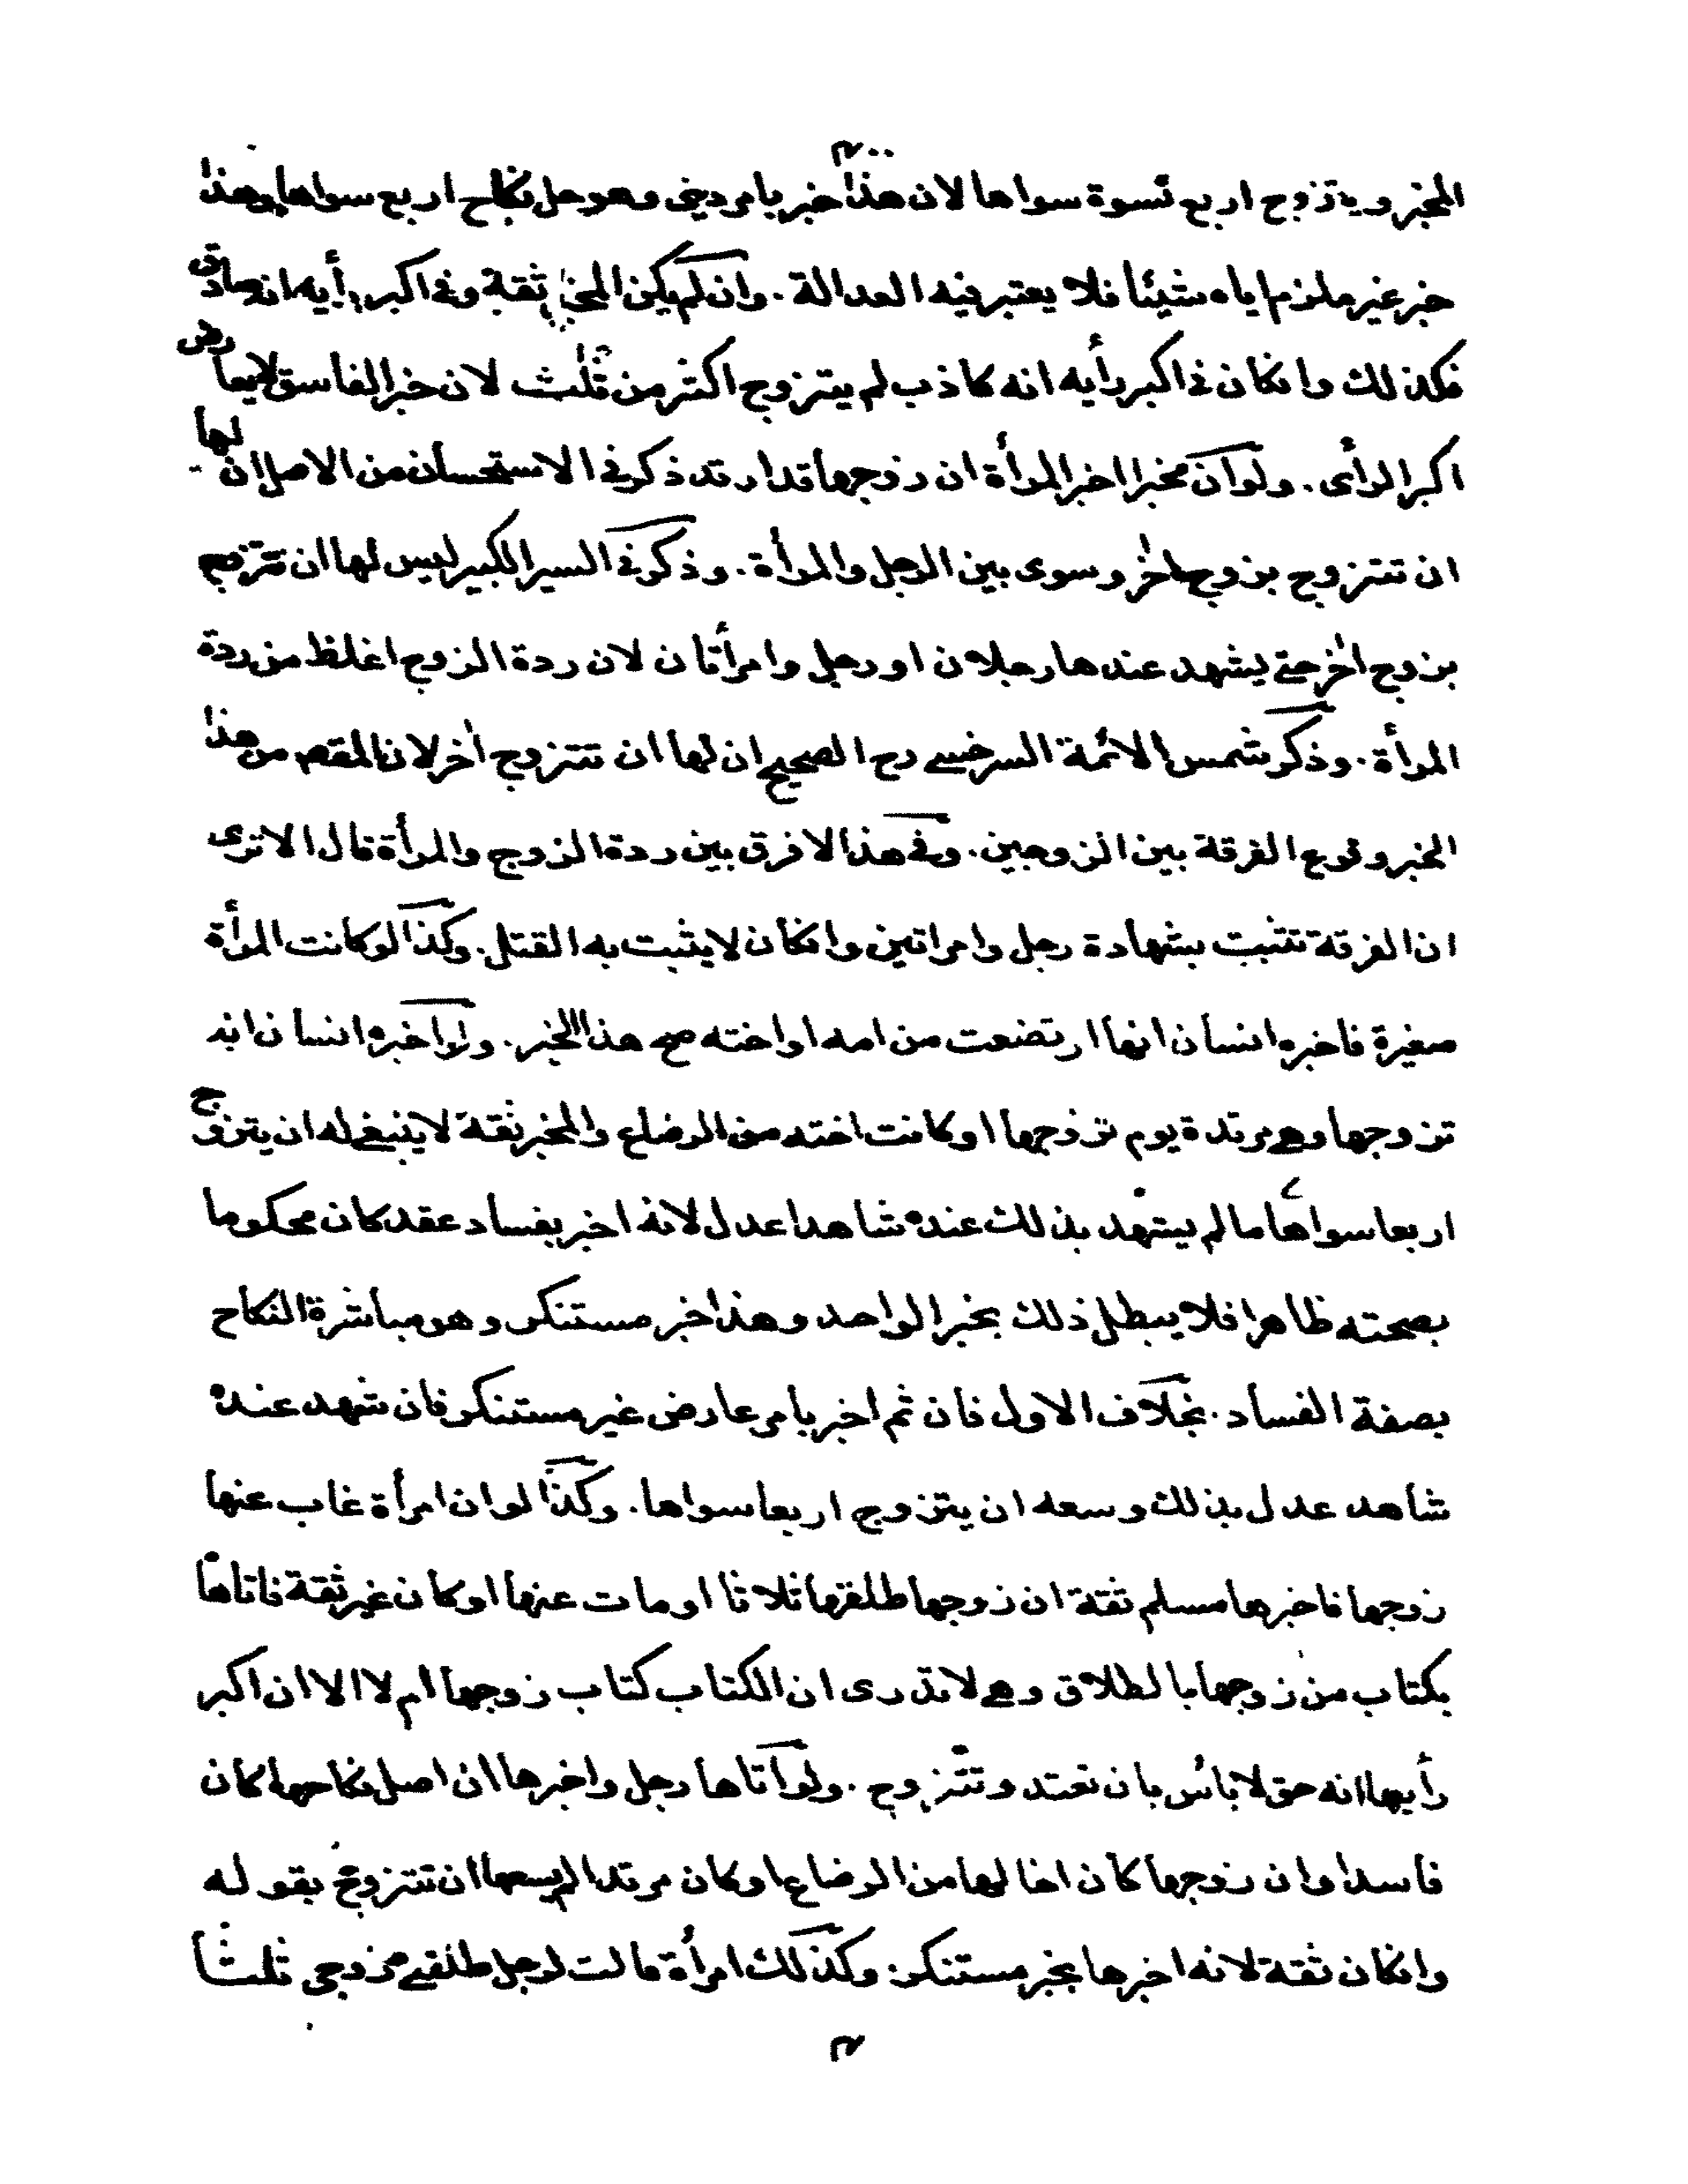 ٣٠٠
المخبر ويتزوج اربع نسوة سواها لان هذا خبر بامر ديني وهو حل نكاح اربع سواها وهذا
خبر غير ملزم اياه شيئا فلا يعتبر فيه العدالة . وان لم يكن المخبر ثقة وفي اكبر رأيه انه صادق
فكذلك وانكان في اكبر رأيه انه كاذب لم يتزوج اكثر من ثلث لان خبر الفاسق لايعارض
اكبر الرأى . ولو ان مخبرا اخبر المرأة ان زوجها قد ارتد ذكر في الاستحسان من الاصل ان لها
ان تتزوج بزوج اخر وسوى بين الرجل والمرأة . وذكر في السير الكبير ليس لها ان تتزوج
بزوج اخر حتى يشهد عندها رجلان او رجل وامرأتان لان ردة الزوج اغلظ من ردة
المرأة . وذكر شمس الائمة السرخسي رح الصحيح ان لها ان تتزوج اخر لان المقصد من هذا
الخبر وقوع الفرقة بين الزوجين . وفي هذا لا فرق بين ردة الزوج والمرأة قال الا ترى
ان الفرقة تثبت بشهادة رجل وامراتين وانكان لايثبت به القتل . وكذا لو كانت المرأة
صغيرة فاخبره انسان انها ارتضعت من امه او اخته صح هذا الخبر . ولو اخبره انسان انه
تزوجها وهي مرتدة يوم تزوجها او كانت اخته من الرضاع والمخبر ثقة لاينبغي له ان يتزوج
اربعا سواها مالم يشهد بذلك عنده شاهدا عدل لانه اخبر بفساد عقد كان محكوما
بصحته ظاهرا فلا يبطل ذلك بخبر الواحد وهذا خبر مستنكر وهو مباشرة النكاح
بصفة الفساد . بخلاف الاول فان ثم اخبر بامر عارض غير مستنكر فان شهد عنده
شاهد عدل بذلك وسعه ان يتزوج اربعا سواها . وكذا لو ان امرأة غاب عنها
زوجها فاخبرها مسلم ثقة ان زوجها طلقها ثلاثا او مات عنها او كان غير ثقة فاتاها
بكتاب من زوجها بالطلاق وهي لا تدرى ان الكتاب كتاب زوجها ام لا الا ان اكبر
رأيها انه حق لا بائس بان تعتد وتتزوج . ولو اتاها رجل واخبرها ان اصل نكاحها كان
فاسدا وان زوجها كان اخا لها من الرضاع او كان مرتدا لم يسعها ان تتزوج بقوله
وانكان ثقة لانه اخبرها بخبر مستنكر . وكذلك امرأة قالت لرجل طلقني زوجي ثلثا